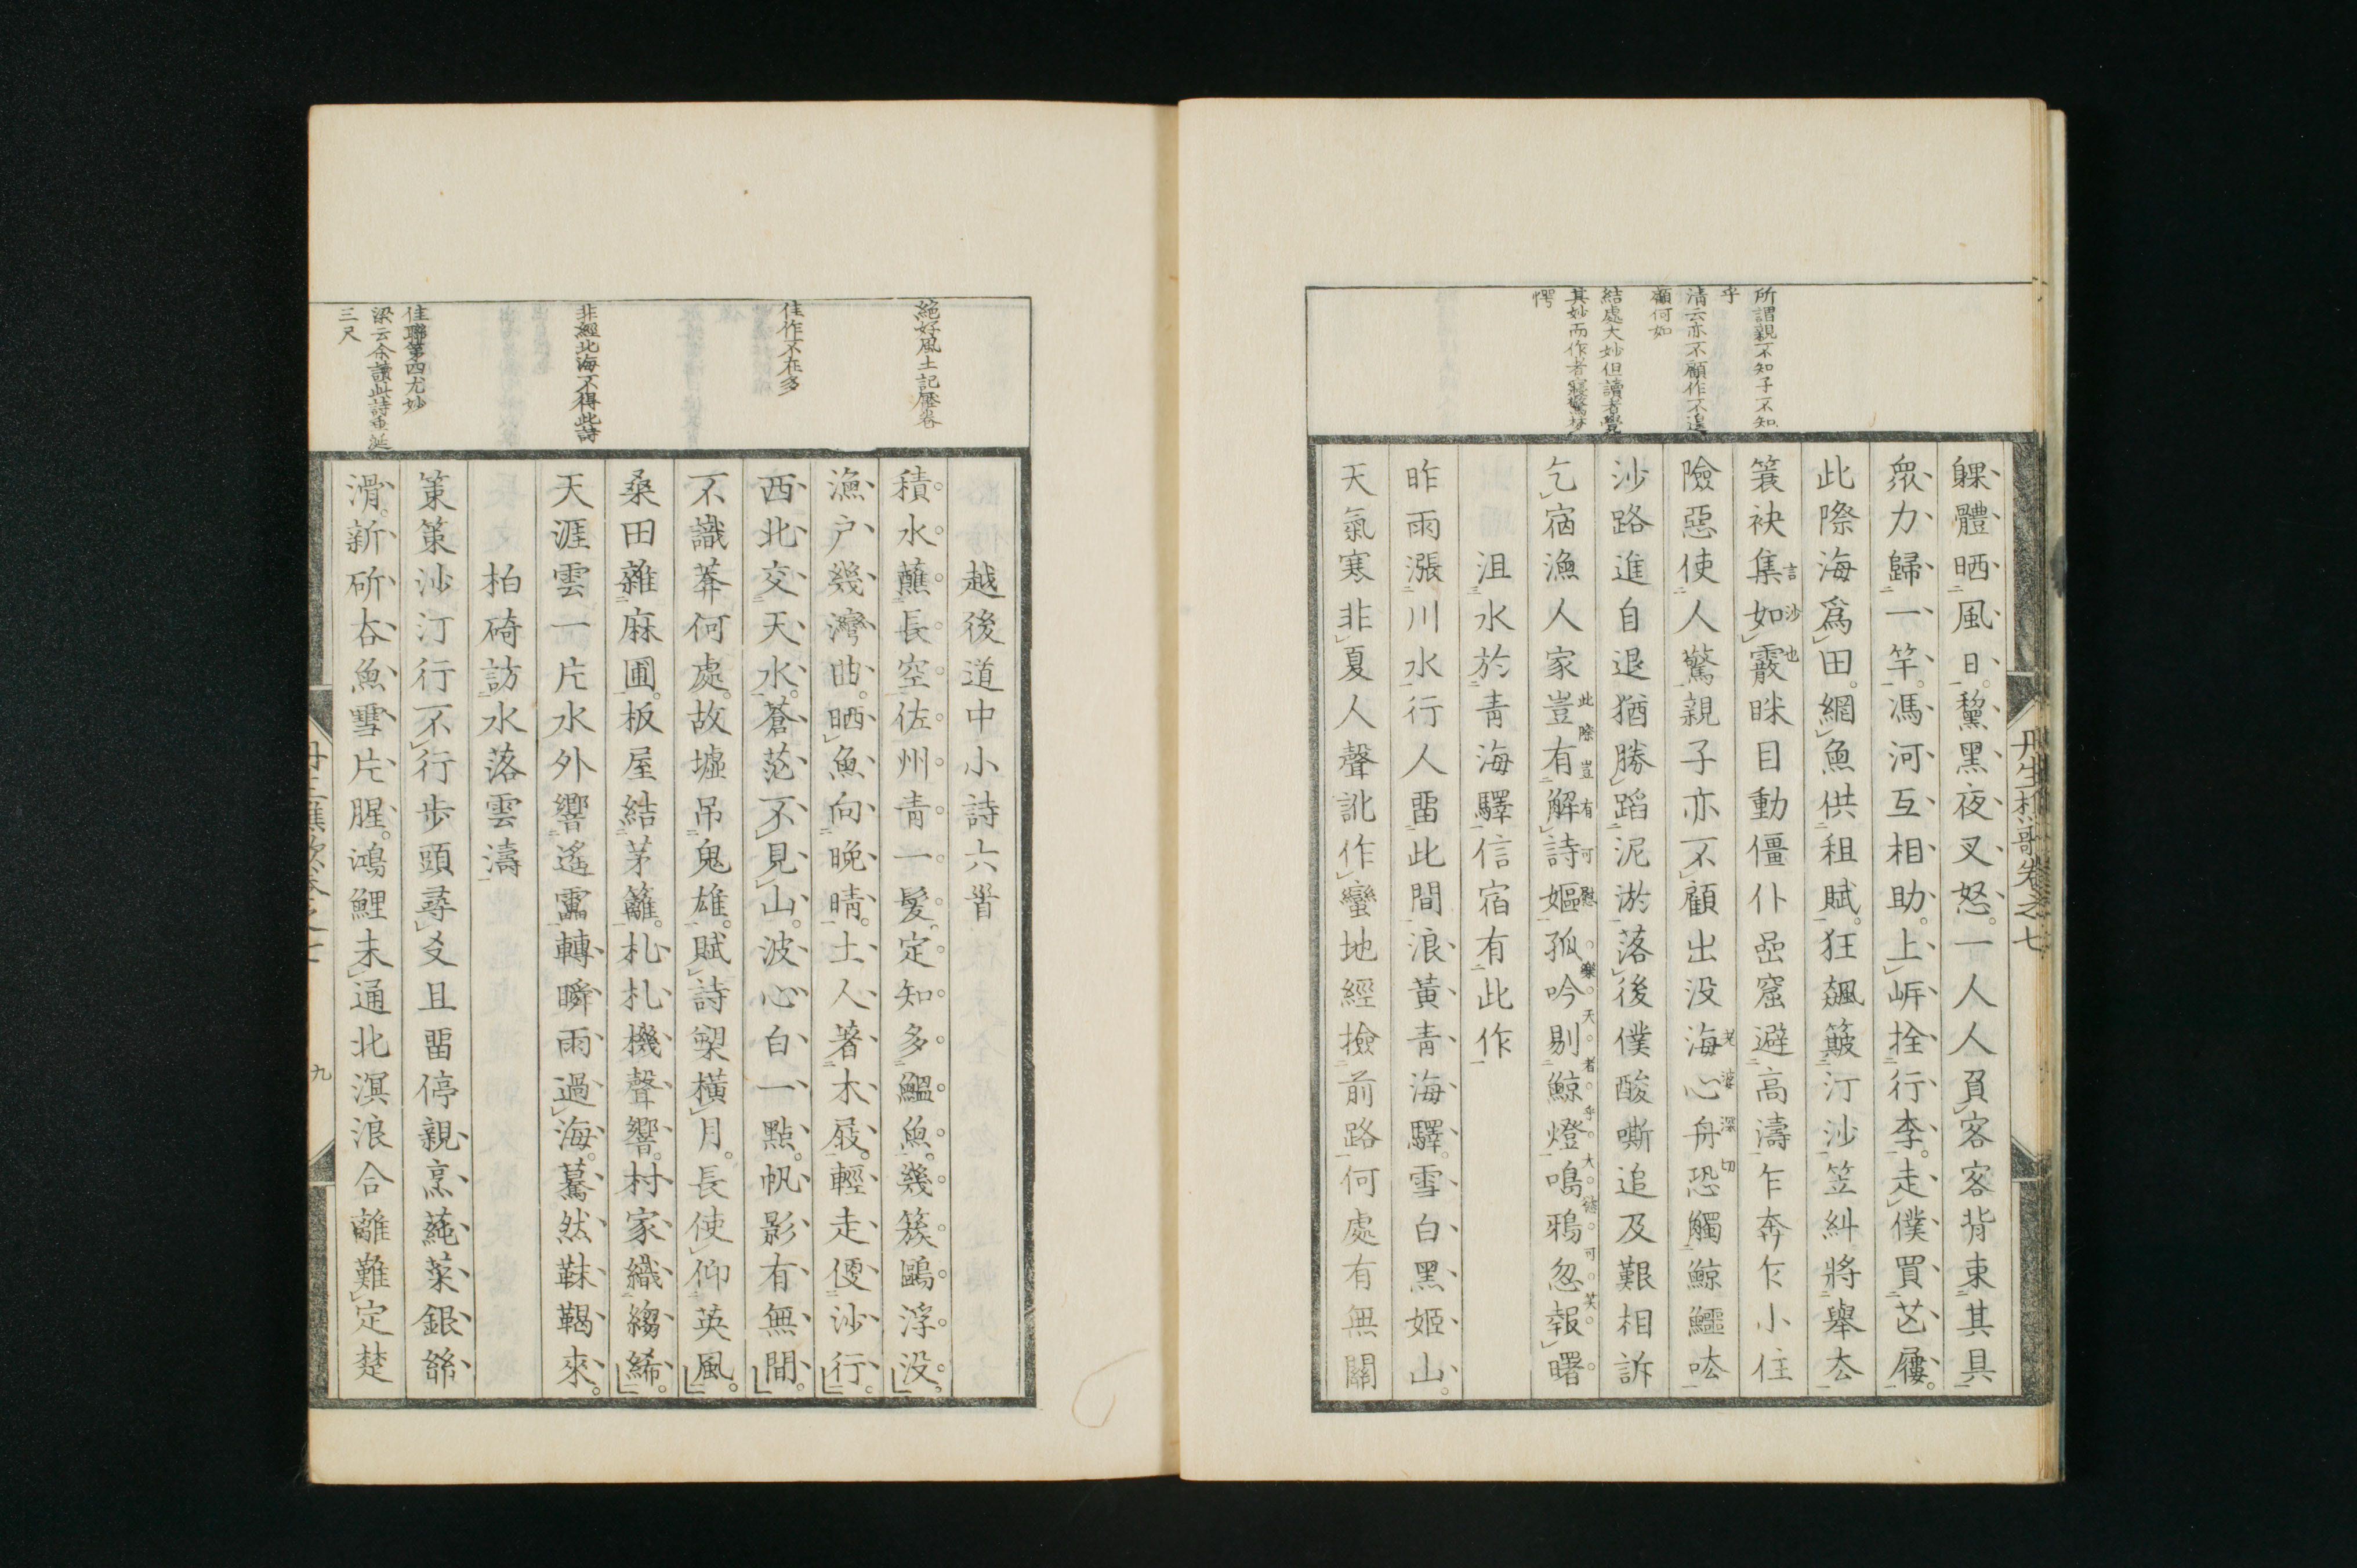 所謂親不知子不知
乎
清云亦不顧作不遑
顧何如
結處大妙但讀者覺
其妙而作者寢驚梦
愕
躶體晒風日黧黑夜叉怒一人人負客客背束其具
衆力歸一竿馮河互相助上岍拴行李走僕買芒屨
此際海爲田網魚供租賦狂飆簸汀沙笠糾將舉去
簑袂集如霰眯目動僵仆嵒窟避高濤乍奔乍小住
言沙也
險惡使人驚親子亦不顧出没海心舟恐觸鯨鱷呿
老婆深切
沙路進自退猶勝蹈泥淤落後僕酸嘶追及艱相訴
乞宿漁人家豈有解詩嫗孤吟剔鯨燈鳴鴉忽報曙
此際豈有可慰樂天者乎大結可笑
沮水於青海驛信宿有此作
昨雨漲川水行人畱此間浪黃青海驛雪白黑姬山
天氣寒非夏人聲訛作蠻地經撿前路何處有無關
丹生樵歌卷之七
絕好風土記壓卷
佳作不在多
非經北海不得此詩
佳聯第四尤妙
梁云余讀此詩垂涎
三尺
越後道中小詩六首
積水蘸長空佐州青一髮定知多鰮魚幾簇鷗浮没
漁户幾灣曲晒魚向晚晴土人著木屐輕走便沙行
西北交天水蒼茫不見山波心白一點帆影有無間
不識葬何處故墟吊鬼雄賦詩槊橫月長使仰英風
桑田雜麻圃板屋結茅籬札札機聲響村家織縐絺
天涯雲一片水外響遙靁轉瞬雨過海驀然靺鞨來
柏碕訪水落雲濤
策策沙汀行不行步頭尋爻且畱停親烹蒓菜銀絲
滑新斫夻魚雪片腥鴻鯉未通北溟浪合離難定楚
丹生樵歌卷之七
九